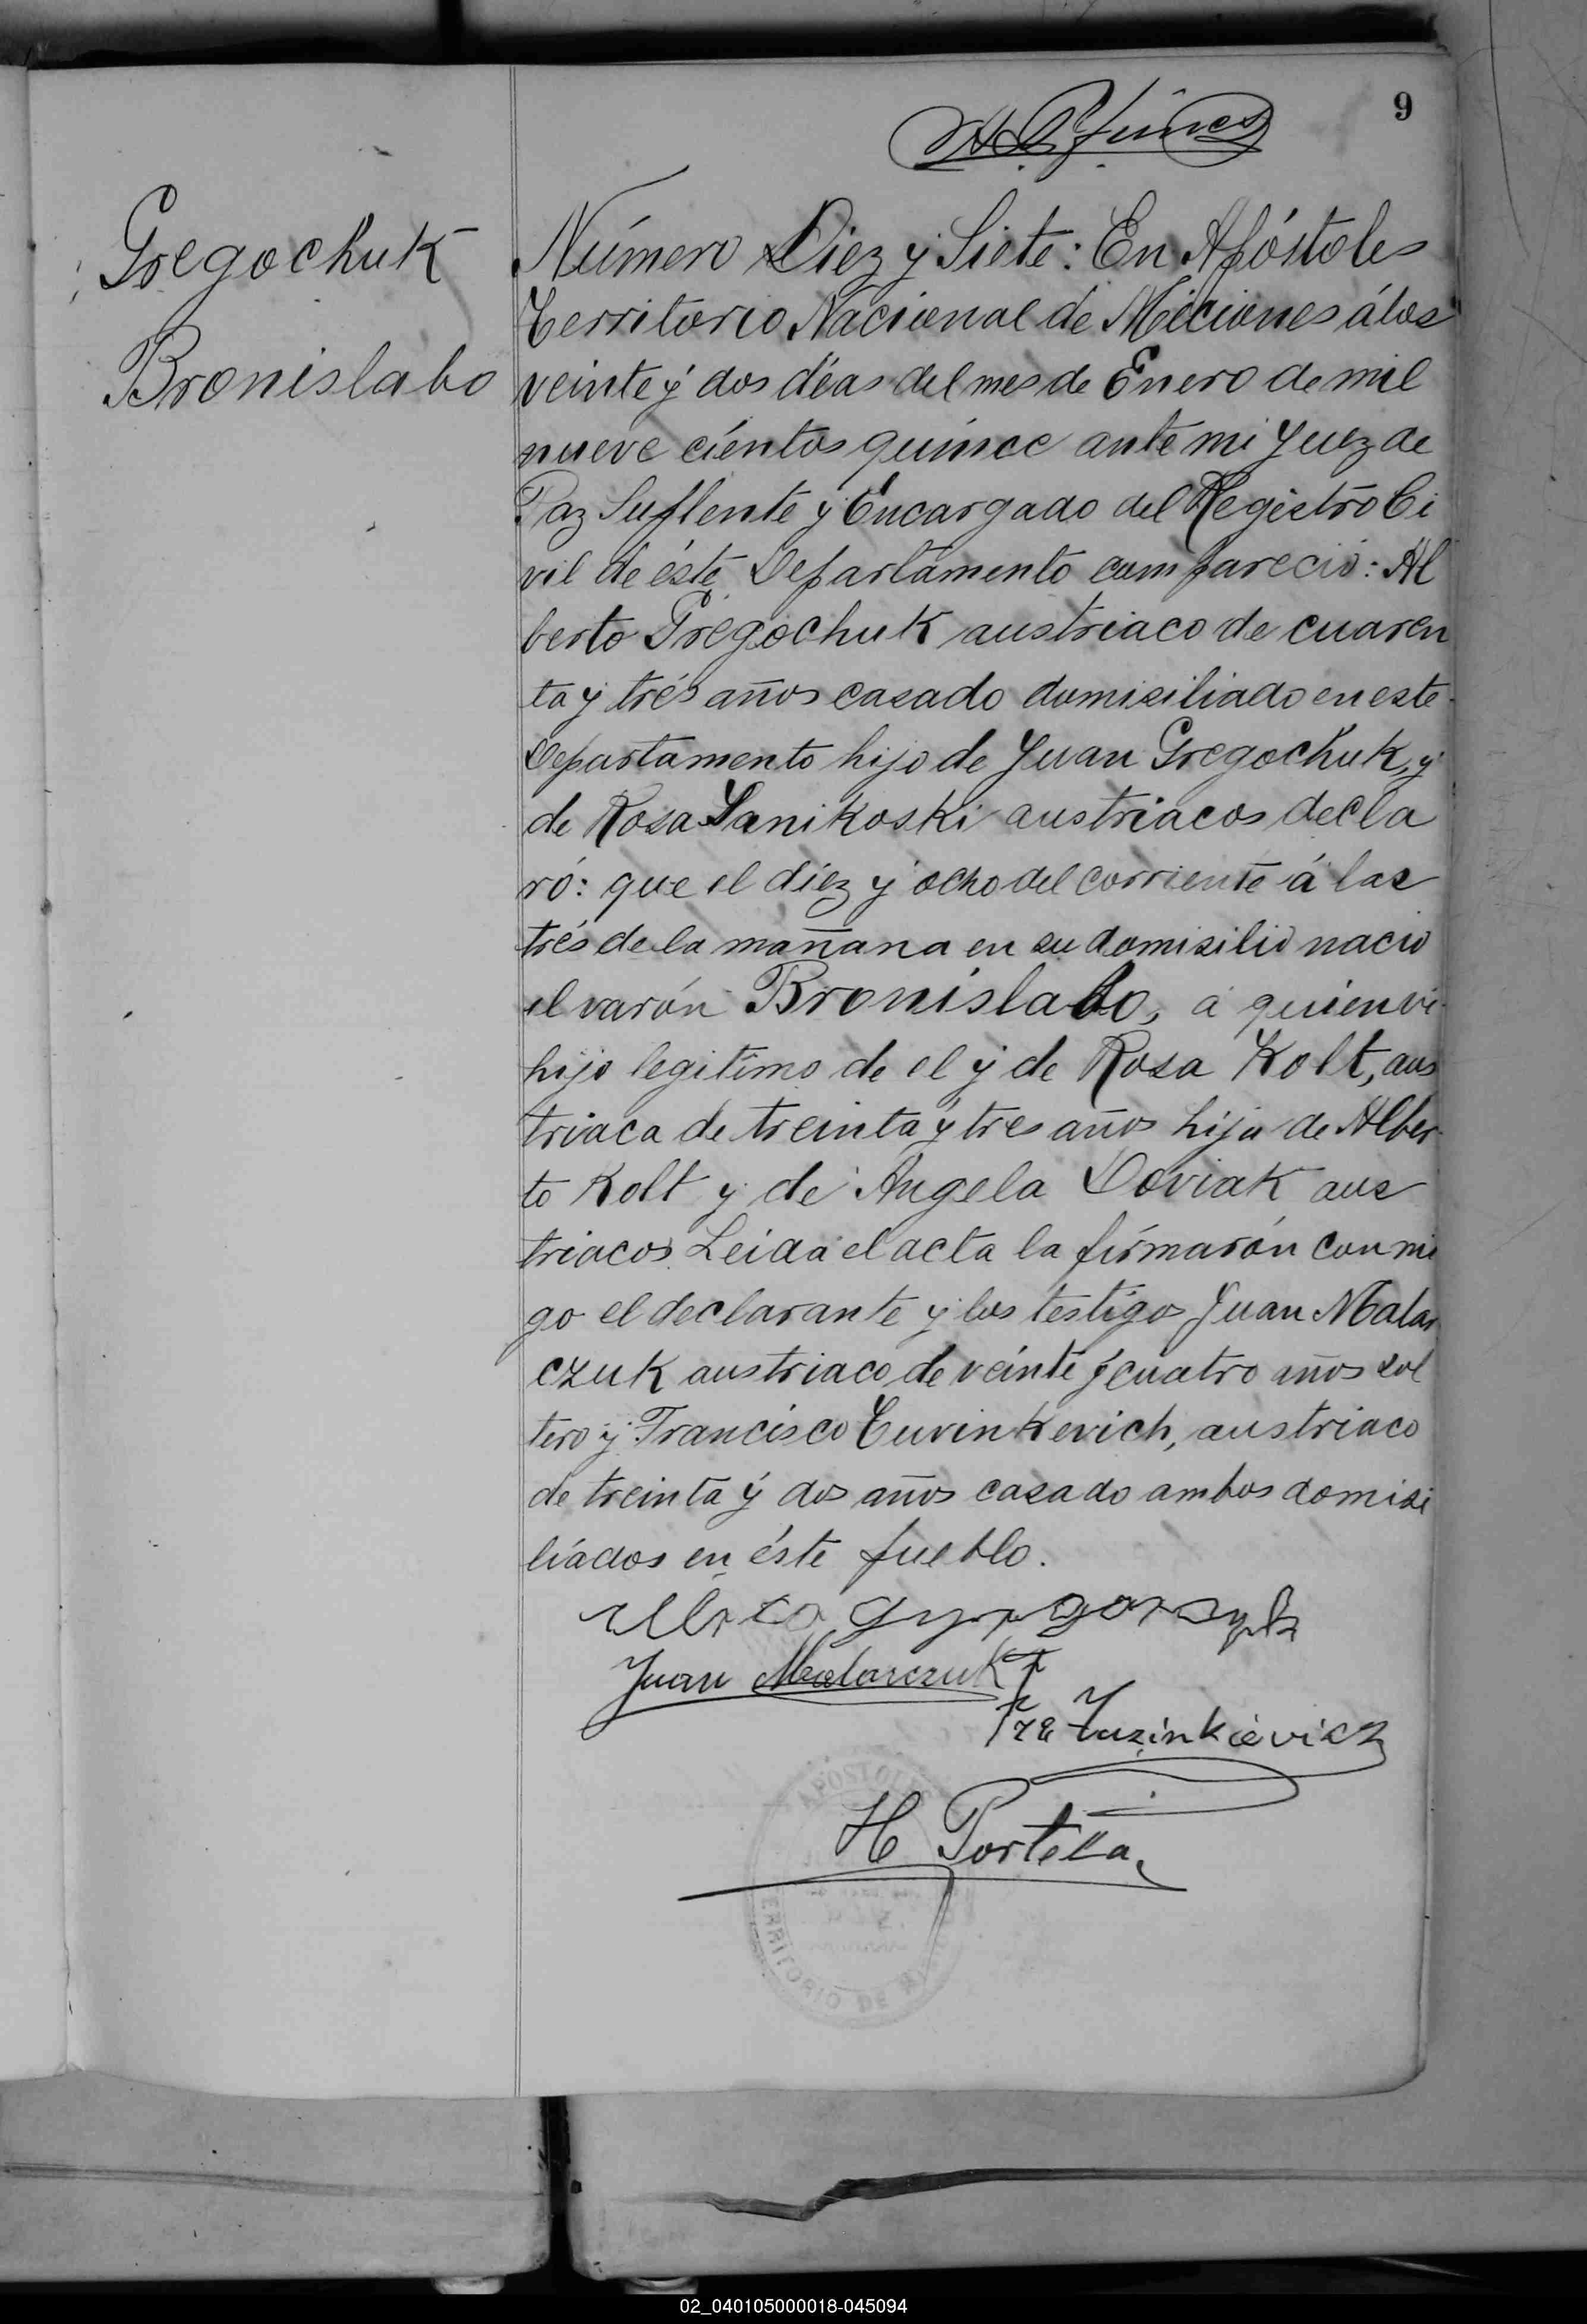 9
Gregochuk
Bronislabo
Número Diez y Siete: En Apóstoles
Territorio Nacional de Miciones á los
veinte y dos dias del mes de Enero de mil
nueve cientos quince ante mi Juez de
Paz Suplente y Encargado del Registro Ci
vil de éste Departamento compareció: Al
berto Gregochuk austriaco de cuaren
ta y trés años casado domisiliado en este
Departamento hijo de Juan Gregochuk, y
de Rosa Sanikoski austriacos decla
ró: que el diez y ocho del corriente á las
trés de la mañana en su domisilio nacio
el varón Bronislabo, a quien vi
hijo legitimo de el y de Rosa Kolt, aus
triaca de treinta y tres años hija de Alber
to Kolt y de Angela Doviak aus
triacos. Leida el acta la firmarón conmi
go el declarante y los testigos Juan Malar
czuk austriaco de veinte y cuatro años sol
tero y Francisco Tuvinkevich, austriaco
de treinta y dos años casado ambos domisi
liados en éste pueblo.
Juan Malarczuk
Tuzinkievicz
H Portela
APOSTOLES
TERRITORIO DE
02_040105000018-045094